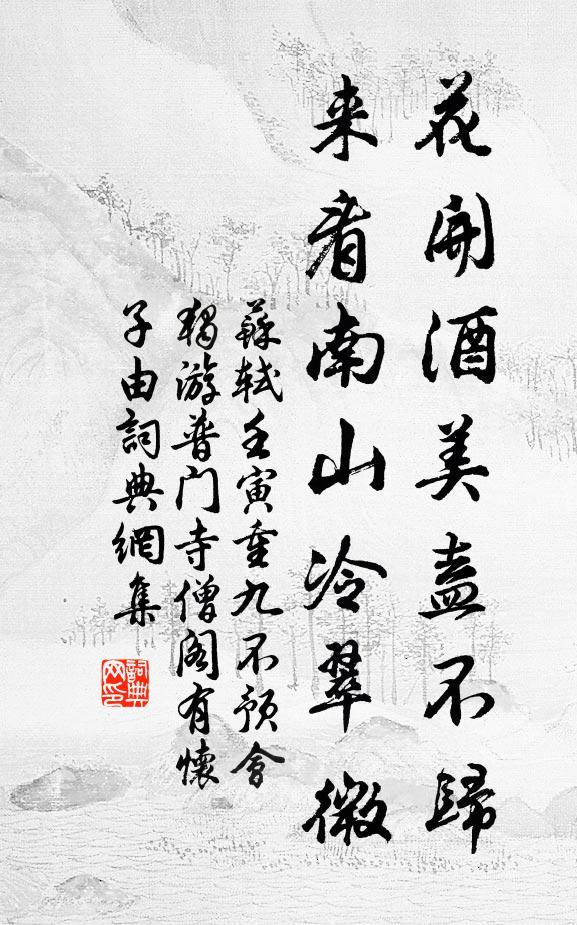 花開酒美盍不歸
来看南山冷翠微
蘇軾壬寅重九不預會
獨游普门寺僧阁有懷
子由詞典網集
詞典
网印